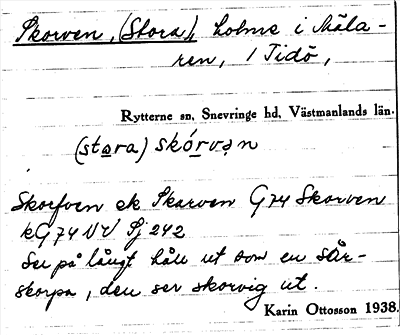 Skorven, (Stora), holme i Mäla-
ren, 1 Tidö,
Rytterne sn, Snevringe hd, Västmanlands län.
(stɷra) skórvən
Skorfven ek Skarven G74 Skorven
kG74 NV Sj 242
Ser på långt håll ut som en sår-
skorpa, den ser skorvig ut.
Karin Ottosson 1938.